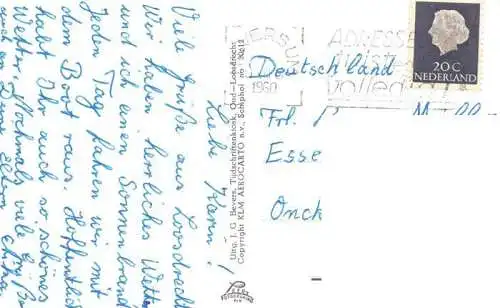 Liebe Karin!
Viele Grüße aus Loosdrecht
Wir haben herrliches Wetter
und ich einen Sonnenbrand.
Jeden Tag fahren wir mit
dem Boot raus. Hoffentlich
habt Ihr auch so schönes
Wetter. Nochmals viele
Uitg. J. G. Bevers, Tijdschriftenkiosk, Oud-Loosdrecht
Copyright KLM AEROCARTO n.v., Schiphol no 30612
HILVERSUM
1960
ADRESSEER
JUIST
volledig
20 C
NEDERLAND
Deutschland
Frl.
Esse
Onck